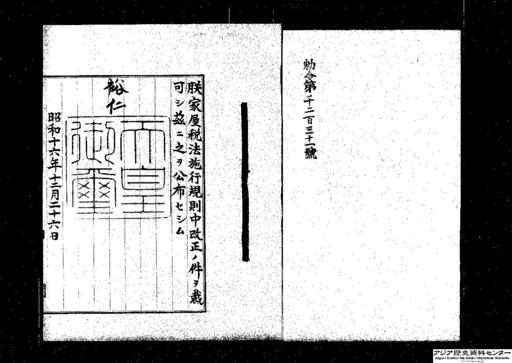 勅令第千二百三十一號
朕家屋税法施行規則中改正ノ件ヲ裁
可シ茲ニ之ヲ公布セシム
裕仁
天皇
御璽
昭和十六年十二月二十六日
アジア歴史資料センター
Japan Center for Asian Historical Records